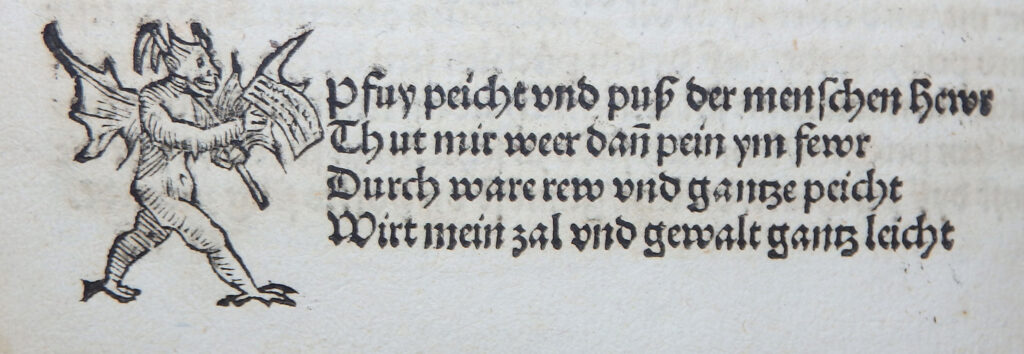 Pfuy peicht vnd puß der menschen hewr
Thut mir weer dañ pein ym fewr
Durch ware rew vnd gantze peicht
Wirt mein zal vnd gewalt gantz leicht